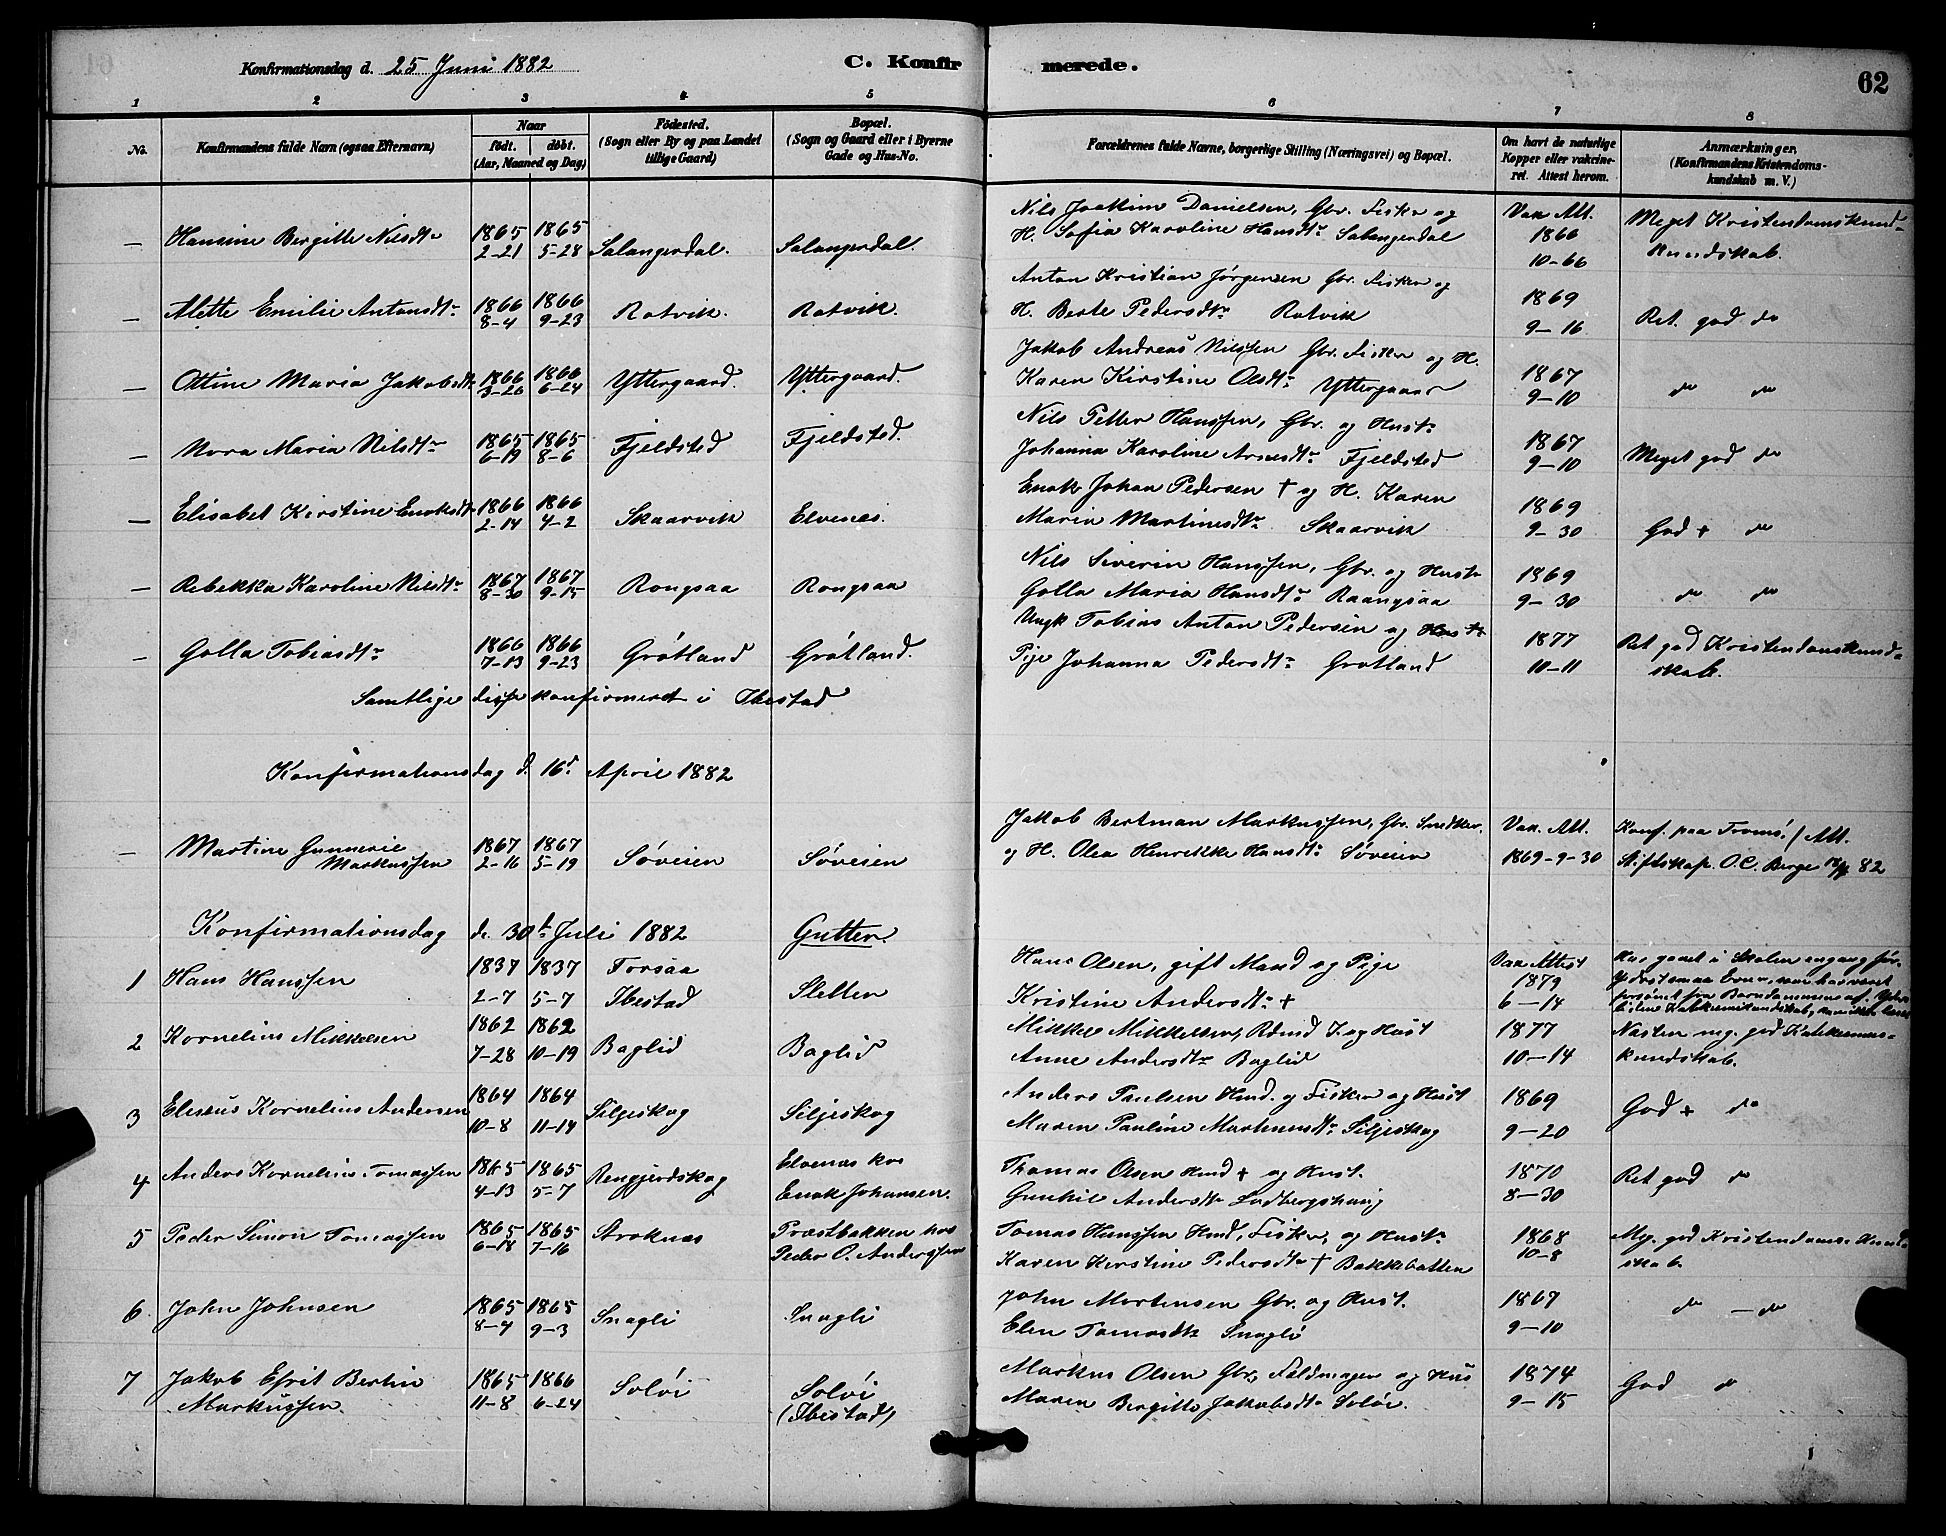 Konfirmationsdag d. 25 Juni 1882
C. Konfirmerede.
62
1 2 3 4 5 6 7 8
No.
Konfirmandens fulde Navn (ogsaa Efternavn)
Naar
födt. döbt.
(Aar, Maaned og Dag)
Födested.
(Sogn eller By og paa Landet
tillige Gaard)
Bopæl.
(Sogn og Gaard eller i Byerne
Gade og Hus-No.
Forældrenes fulde Navne, borgerlige Stilling (Næringsvei) og Bopæl.
Om havt de naturlige
Kopper eller vakcine-
ret. Attest herom.
Anmærkninger.
(Konfirmandens Kristendoms-
kundskab m. V.)
— Hansine Bergitte Nilsdtr 1865 2-21 1865 5-28 Salangerdal. Salangerdal. Nils Joakim Danielsen, Gbr. Fisker og
H. Sofia Karoline Hansdtr Salangerdal Vax. Att. 1866 10-66 Meget Kristendomskund-
kundskab.
— Alette Emilie Antonsdtr 1866 8-4 1866 9-23 Rotvik. Rotvik. Anton Kristian Jørgensen Gbr. Fisker og
H. Berte Pedersdtr Rotvik 1869 9-16 Ret god do
— Ottine Maria Jakobsdtr 1866 3-20 1866 6-24 Yttergaard. Yttergaard. Jakob Andreas Nilssen Gbr. Fisker og H.
Karen Kirstine Olsdtr Yttergaard 1867 9-10 do do
— Nora Maria Nilsdtr 1865 6-19 1865 8-6 Fjeldsted Fjeldsted. Nils Petter Hanssen, Gbr. og Hustr
Johanna Karoline Arnesdtr Fjeldsted 1867 9-10 Meget god do
— Elisabet Kirstine Enoksdtr 1866 2-14 1866 4-2 Skaarvik Elvenes. Enok Johan Pedersen † og H. Karen
Maria Martinesdtr Skaarvik 1869 9-30 God + do
— Rebekka Karoline Nilsdtr 1867 8-30 1867 9-15 Rongsaa Rongsaa Nils Siverin Hanssen, Gbr. og Hustr
Golla Maria Hansdtr Raangsaa 1869 9-30 do do
— Golla Tobiasdtr 1866 7-13 1866 9-23 Grøtland Grøtland. Ungk Tobias Anton Pedersen og
Pige Johanna Pedersdtr Grøtland 1877 10-11 Ret god Kristendomskund-
skab.
Samtlige disse konfirmeret i Ibestad
Konfirmationsdag d. 16d April 1882
— Martine Gunnerie
Markussen 1867 2-16 1867 5-19 Søveien Søveien Jakob Bertman Markussen, Gbr. Snedker.
og H. Olea Henrikke Hansdtr Søveien Vax. Att. 1869-9-30 Konf. paa Tromsø. / Att.
Stiftskap. O.C. Berge 82
Konfirmationsdag d. 30d Juli 1882 Gutter.
1 Hans Hanssen 1837 2-7 1837 5-7 Forsaa
Ibestad Sletten Hans Olsen, gift Mand og Pige
Kristine Andersdtr + Vax Attest 1879 6-14 Har gaaet i Skolen engang før.
2 Kornelius Mikkelsen 1862 7-28 1862 10-19 Baglid Baglid Mikkel Mikkelsen, og Hust
Anne Andersdtr Baglid 1877 10-14 Næsten mg. god Katekismus-
kundskab.
3 Eliseus Kornelius Andersen 1864 10-8 1864 11-14 Siljeskog Siljeskog Anders Paulsen Hmd. og Fisker og Hust
Maren Pauline Martinusdtr Siljeskog 1869 9-20 God + do
4 Anders Kornelius Tomassen 1865 4-13 1865 5-7 Rengjerdskog Elvenes hos
Enok Johansen. Thomas Olsen Hmd + og Hust.
Gunhil Andersdtr Lundbergshaug 1870 8-30 Ret god do
5 Peder Simon Tomassen 1865 6-18 1865 7-16 Stroknes Præstbakken hos
Peder O. Anderssen Tomas Hanssen Hmd, Fisker, og Hustr
Karen Kirstine Pedersdtr † Bakkebotten 1868 10-8 Mg. god Kristendoms-kund-
skab
6. John Johnsen 1865 8-4 1865 9-3 Snogli Snogli John Mortensen Gbr. og Hust.
Elen Tomasdtr Snogli 1867 9-10 do — do
7 Jakob Efrit Bertin
Markussen. 1865 11-8 1866 6-24 Soløi Soløi
(Ibestad) Markus Olsen Gbr., Feldmager og Hus
Maren Bergitte Jakobsdtr Soløi. 1874 9-15 God do